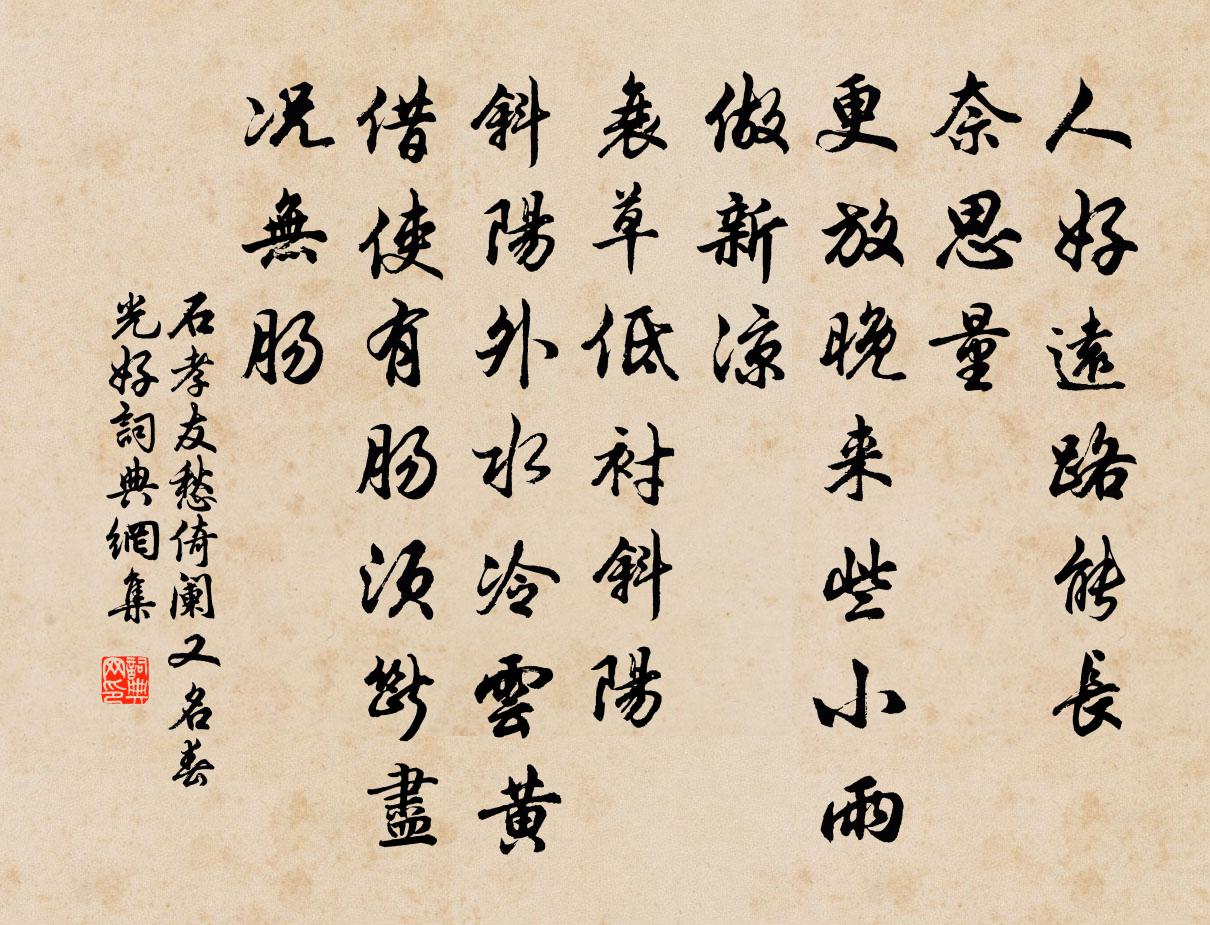 人好遠路能長
奈思量
更放晚来些小雨
做新涼
衰草低衬斜陽
斜陽外水冷雲黄
借使有肠須斷盡
况無肠
石孝友愁倚阑又名春
光好詞典網集
詞典网印